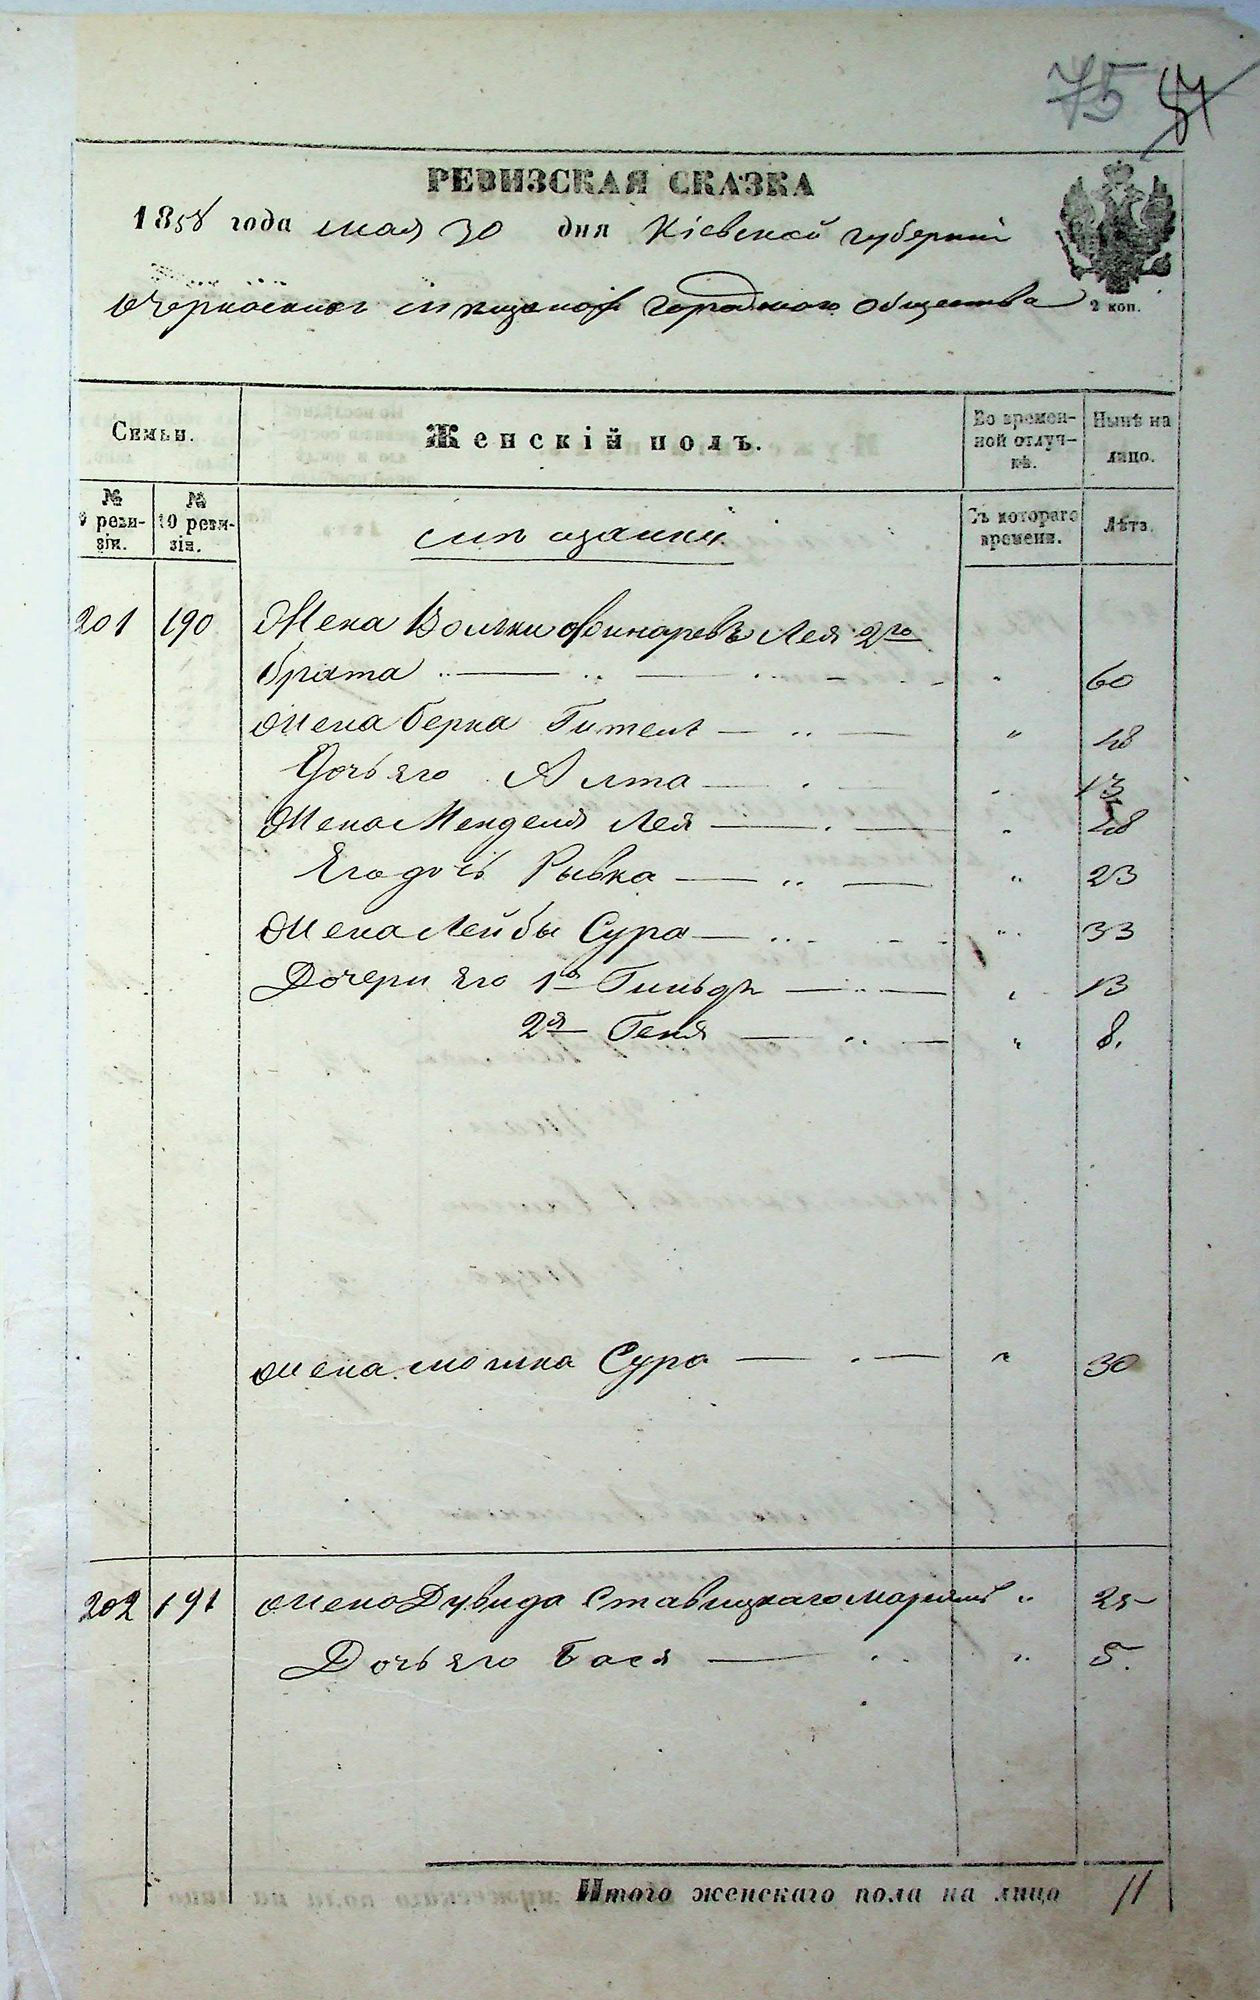 75
РЕВИЗСКАЯ СКАЗКА
1858 года мая 30 дня Кіевской губерніи
городского общества
2 коп.
Семьи.
Женскій полъ.
Во времен-
ной отлуч-
кѣ.
Нынѣ на
лицо.
№
9 реви-
зіи.
№
10 реви-
зіи.
мѣщанки
Съ котораго
времени.
Лѣта.
201 190 Жена Вольки Лея 2го
брата " 60
жена Берка Гитель " 48
Дочь его Алта 13
Жена Менделя Лея
Его дочь Рывка " 23
Жена Лейбы Сура " 33
Дочери его 1я 13
2я Геня " 8.
жена мошка Сура " 30
202 191 жена Дувида Ставицкаго Маріямъ " 25
Дочь его Бася " 5.
Итого женскаго пола на лицо 11